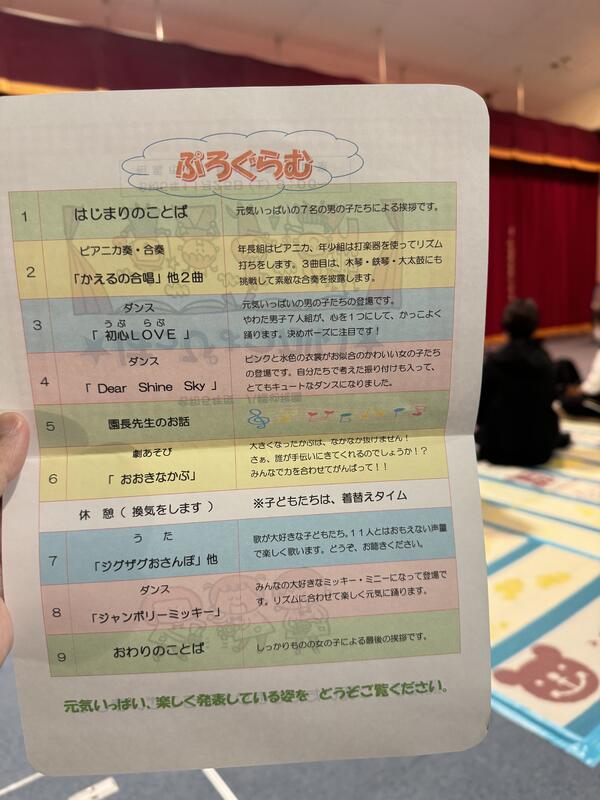 ぷろぐらむ
1 はじまりのことば 元気いっぱいの7名の男の子たちによる挨拶です。
2 ピアニカ奏・合奏
「かえるの合唱」他2曲
年長組はピアニカ、年少組は打楽器を使ってリズム
打ちをします。3曲目は、木琴・鉄琴・大太鼓にも
挑戦して素敵な合奏を披露します。
3 ダンス
うぶ らぶ
「 初心LOVE 」
元気いっぱいの男の子たちの登場です。
やわた男子7人組が、心を1つにして、かっこよく
踊ります。決めポーズに注目です！
4 ダンス
「 Dear Shine Sky 」
ピンクと水色の衣裳がお似合のかわいい女の子たち
の登場です。自分たちで考えた振り付けも入って、
とてもキュートなダンスになりました。
5 園長先生のお話
6 劇あそび
「 おおきなかぶ」
大きくなったかぶは、なかなか抜けません！
さぁ、誰が手伝いにきてくれるのでしょうか！？
みんなで力を合わせてがんばって！！
休 憩（ 換気をします ） ※子どもたちは、着替えタイム
7 う た
「ジグザグおさんぽ」他
歌が大好きな子どもたち。11人とはおもえない声量
で楽しく歌います。どうぞ、お聴きください。
8 ダンス
「ジャンボリーミッキー」
みんなの大好きなミッキー・ミニーになって登場で
す。リズムに合わせて楽しく元気に踊ります。
9 おわりのことば しっかりものの女の子による最後の挨拶です。
元気いっぱい、楽しく発表している姿を どうぞご覧ください。